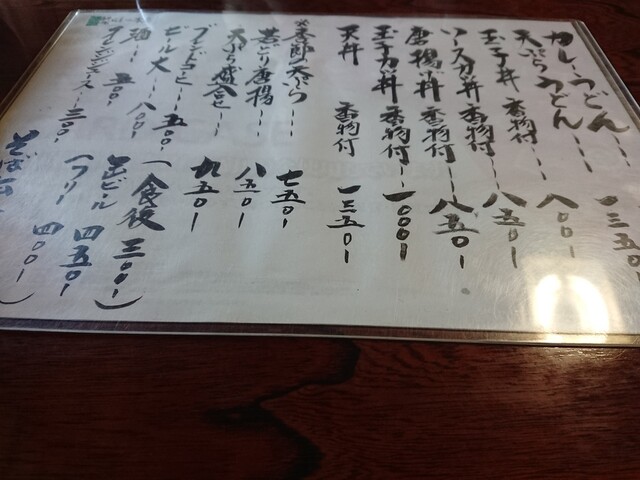 カレーうどん
天ぷらうどん 一三五〇
玉子丼 香物付 八〇〇
ソースカツ丼 香物付 八五〇
唐揚丼 香物付 八五〇
玉子カツ丼 香物付 一〇〇〇
天丼 香物付 一三五〇
※季節の天ぷら 七五〇
若どり唐揚 八五〇
天ぷら盛合せ 九五〇
ブレンドコーヒー 五〇〇 (食後 三〇〇)
ビール大 八〇〇 (缶ビール 四五〇
酒 五〇〇 (フリー 四〇〇)
オレンジジュース 三〇〇
そば